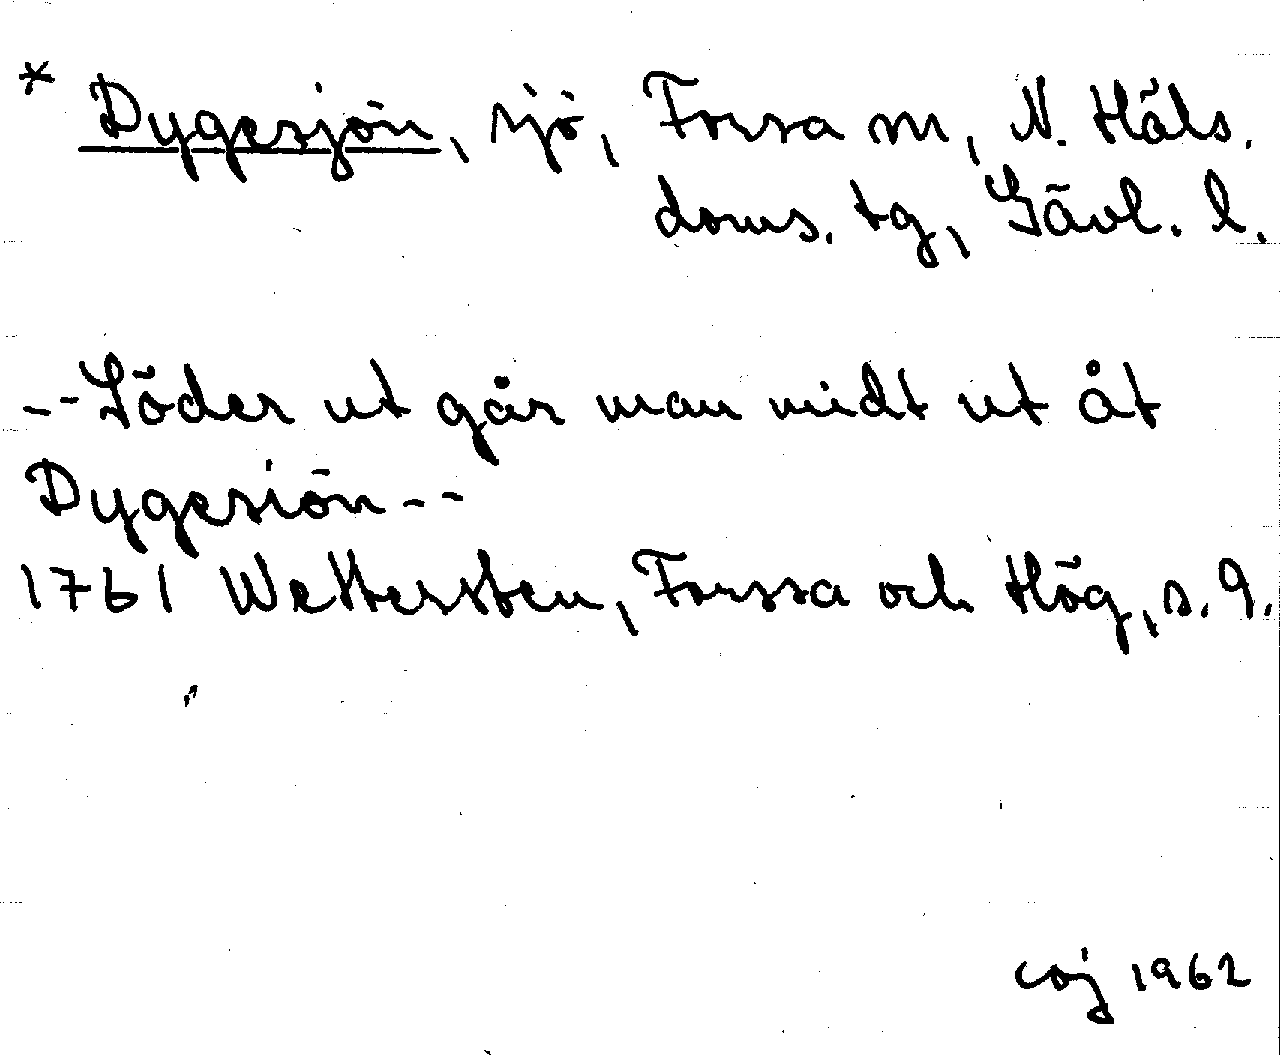 * Dygesjön, sjö, Forsa sn, N. Häls.
doms. tg, Gävl. l.
-- Söder ut går man midt ut åt
Dygesiön --
1761 Wettersten, Forssa och Hög, s. 9.
coj 1962